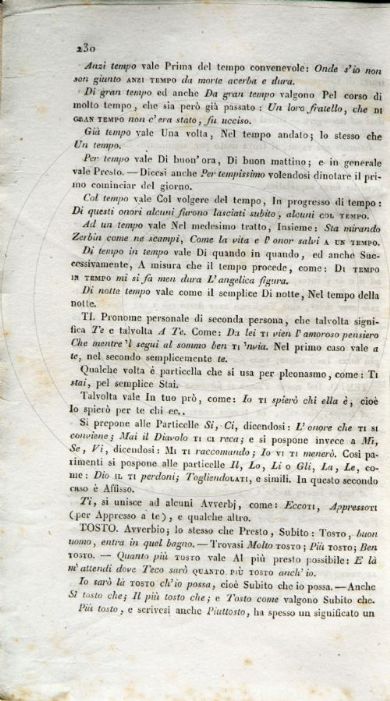 230
Anzi tempo vale Prima del tempo convenevole: Onde s'io non
son giunto ANZI TEMPO da morte acerba e dura.
Di gran tempo ed anche Da gran tempo valgono Pel corso di
molto tempo, che sia però già passato: Un loro fratello, che DI
GRAN TEMPO non c'era stato, fu ucciso.
Già tempo vale Una volta, Nel tempo andato; lo stesso che
Un tempo.
Per tempo vale Di buon'ora, Di buon mattino; e in generale
vale Presto. — Dicesi anche Per tempissimo volendosi dinotare il pri-
mo cominciar del giorno.
Col tempo vale Col volgere del tempo, In progresso di tempo:
Di questi onori alcuni furono lasciati subito, alcuni COL TEMPO.
Ad un tempo vale Nel medesimo tratto, Insieme: Sta mirando
Zerbin come ne scampi, Come la vita e l'onor salvi A UN TEMPO.
Di tempo in tempo vale Di quando in quando, ed anche Suc-
cessivamente, A misura che il tempo procede, come: DI TEMPO
IN TEMPO mi si fa men dura L'angelica figura.
Di notte tempo vale come il semplice Di notte, Nel tempo della
notte.
TI. Pronome personale di seconda persona, che talvolta signi-
fica Te e talvolta A Te. Come: Da lei TI vien l'amoroso pensiero
Che mentre 'l segui al sommo ben TI 'nvia. Nel primo caso vale a
te, nel secondo semplicemente te.
Qualche volta è particella che si usa per pleonasmo, come: TI
stai, pel semplice Stai.
Talvolta vale In tuo prò, come: Io TI spierò chi ella è, cioè
Io spierò per te chi ec.
Si prepone alle Particelle Si, Ci, dicendosi: L'onore che TI si
conviene; Mai il Diavolo TI ci reca; e si pospone invece a Mi,
Se, Vi, dicendosi: Mi TI raccomando; Io vi TI menerò. Così pa-
rimenti si pospone alle particelle Il, Lo, Li o Gli, La, Le, co-
me: Dio IL TI perdoni; TOGLIENDOLATI, e simili. In questo secondo
caso è Affisso.
Ti, si unisce ad alcuni Avverbj, come: ECCOTI, APPRESSOTI
(per Appresso a te), e qualche altro.
TOSTO. Avverbio; lo stesso che Presto, Subito: TOSTO, buon
uomo, entra in quel bagno. — Trovasi Molto TOSTO; Più TOSTO; Ben
TOSTO. — Quanto più TOSTO vale Al più presto possibile: E là
m'attendi dove Teco sarò QUANTO PIÙ TOSTO anch'io.
Io sarò là TOSTO ch'io possa, cioè Subito che io possa. — Anche
Sì tosto che; Il più tosto che; e Tosto come valgono Subito che.
Più tosto, e scrivesi anche Piuttosto, ha spesso un significato un